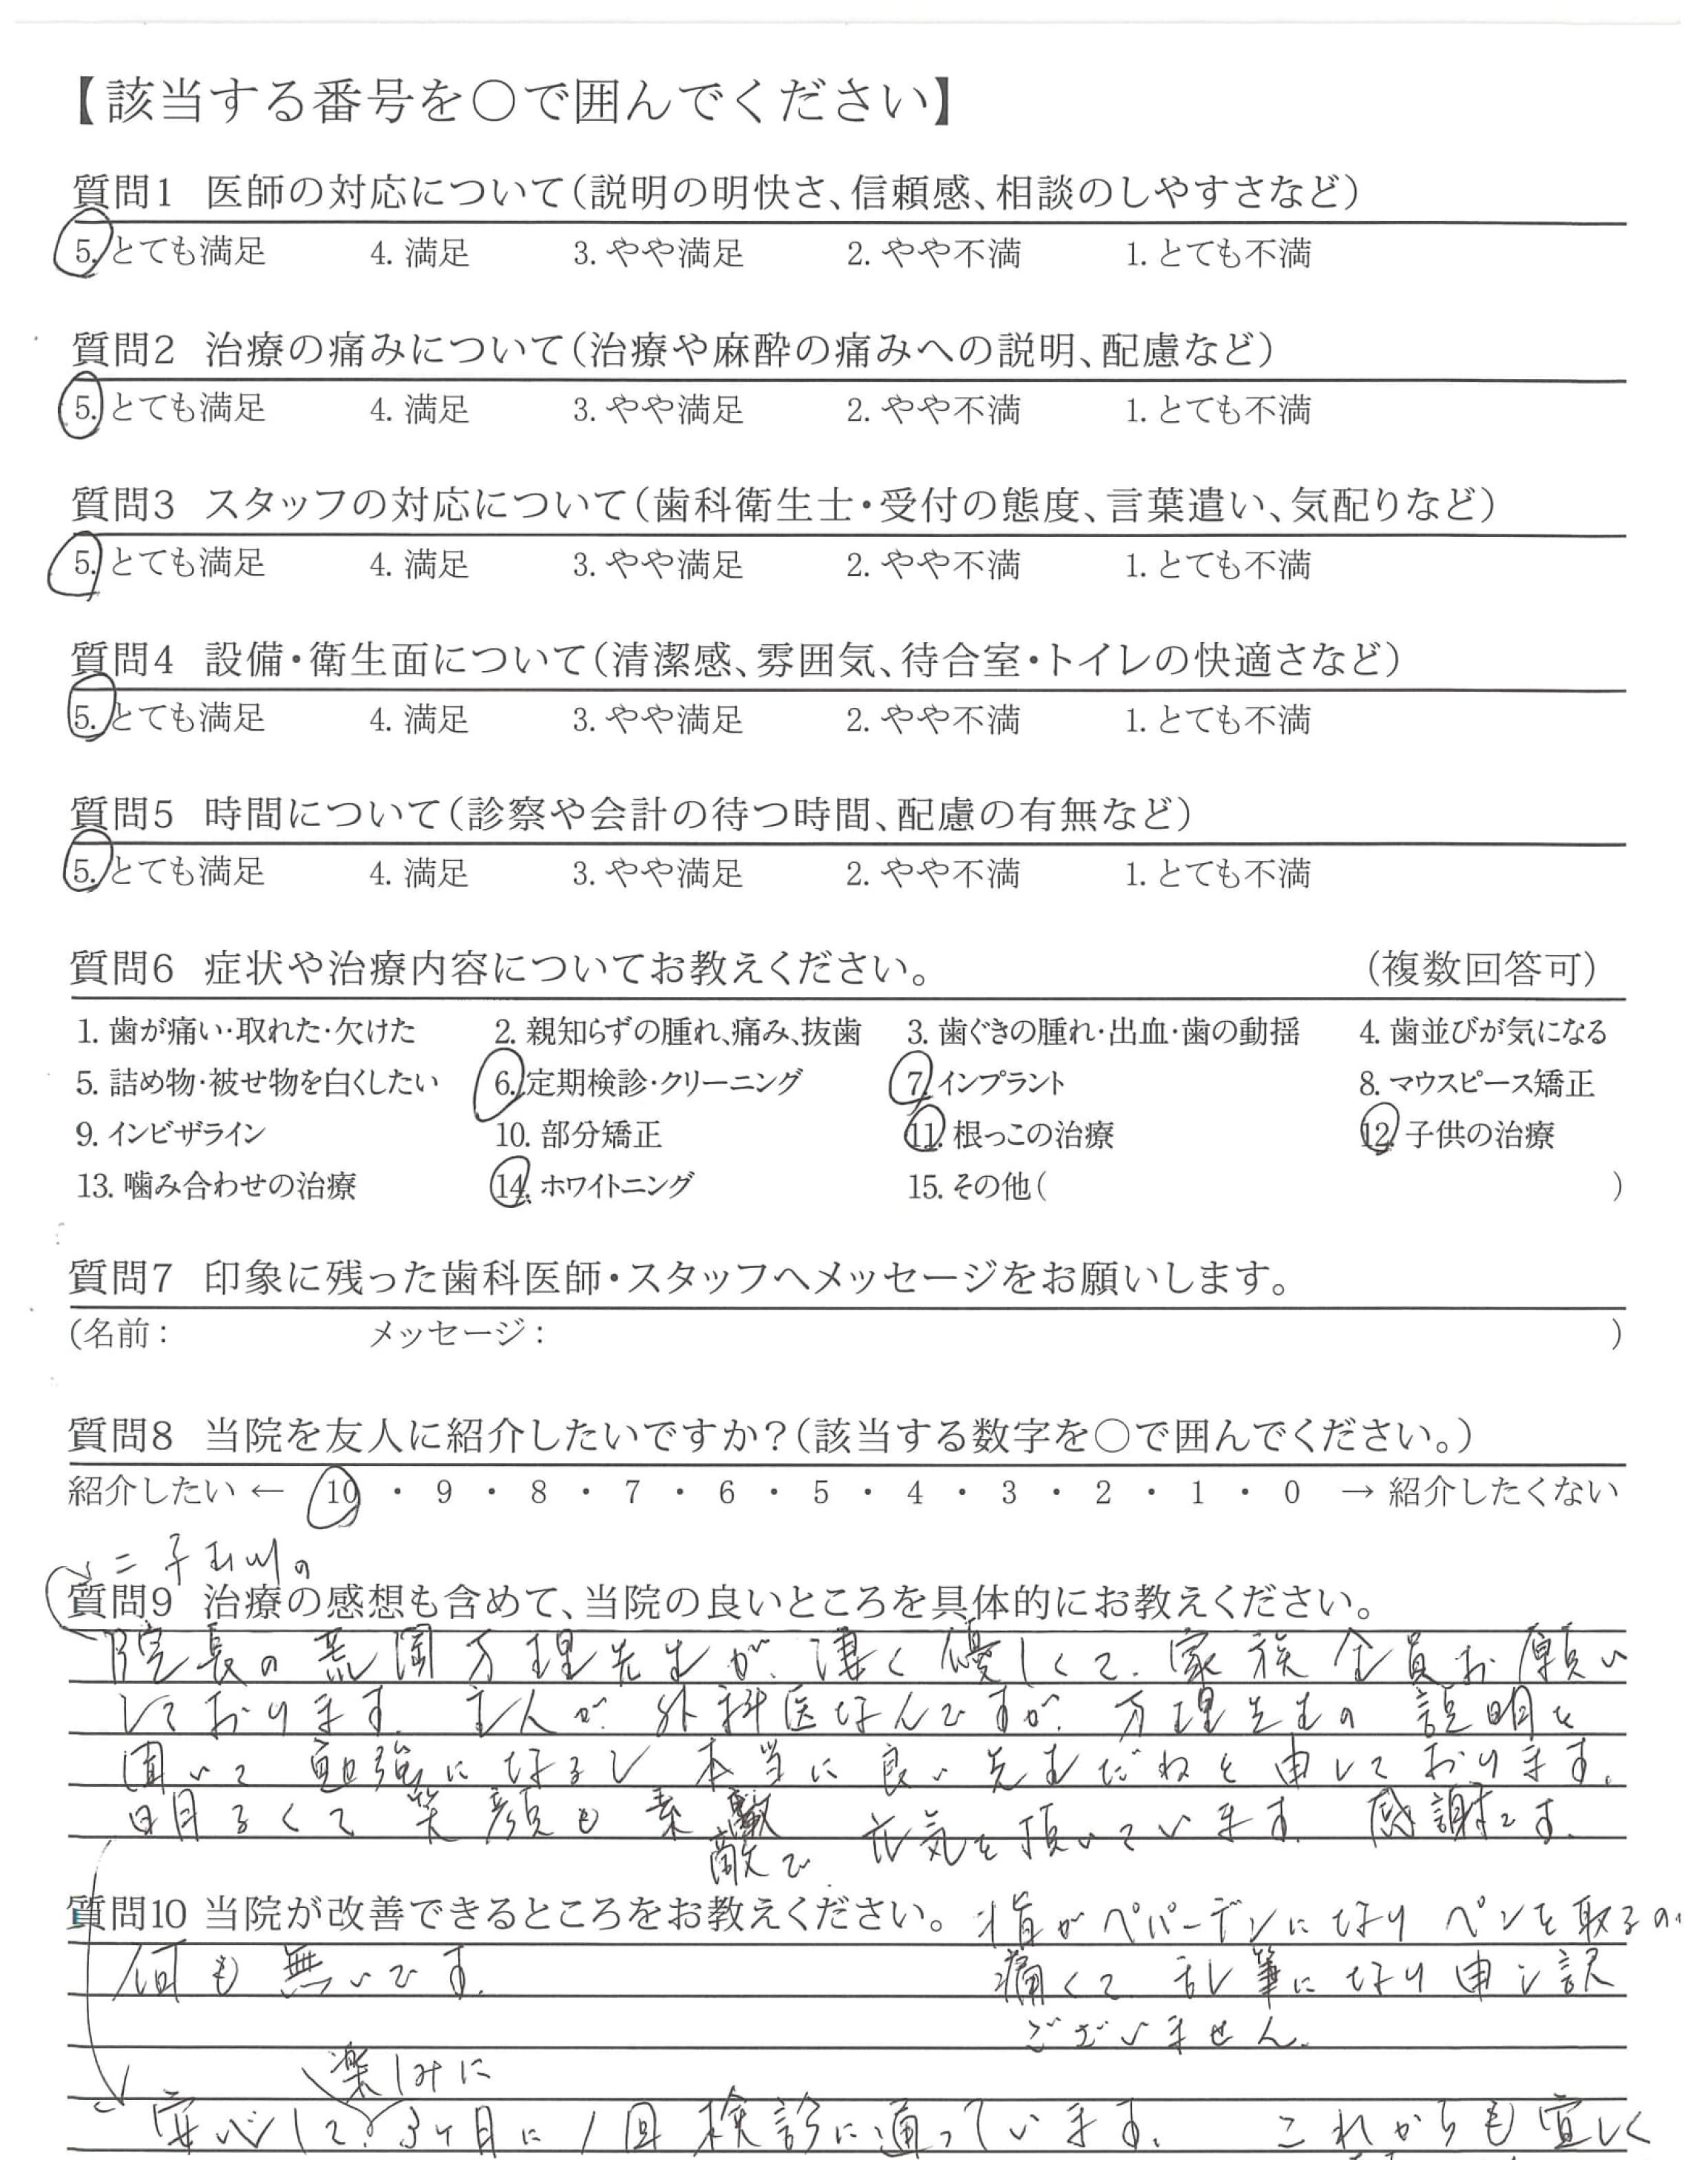 【該当する番号を〇で囲んでください】
質問1 医師の対応について（説明の明快さ、信頼感、相談のしやすさなど）
5. とても満足 4. 満足 3. やや満足 2. やや不満 1. とても不満
質問2 治療の痛みについて（治療や麻酔の痛みへの説明、配慮など）
5. とても満足 4. 満足 3. やや満足 2. やや不満 1. とても不満
質問3 スタッフの対応について（歯科衛生士・受付の態度、言葉遣い、気配りなど）
5. とても満足 4. 満足 3. やや満足 2. やや不満 1. とても不満
質問4 設備・衛生面について（清潔感、雰囲気、待合室・トイレの快適さなど）
5. とても満足 4. 満足 3. やや満足 2. やや不満 1. とても不満
質問5 時間について（診察や会計の待つ時間、配慮の有無など）
5. とても満足 4. 満足 3. やや満足 2. やや不満 1. とても不満
質問6 症状や治療内容についてお教えください。 （複数回答可）
1. 歯が痛い・取れた・欠けた 2. 親知らずの腫れ、痛み、抜歯 3. 歯ぐきの腫れ・出血・歯の動揺 4. 歯並びが気になる
5. 詰め物・被せ物を白くしたい 6. 定期検診・クリーニング 7. インプラント 8. マウスピース矯正
9. インビザライン 10. 部分矯正 11. 根っこの治療 12. 子供の治療
13. 噛み合わせの治療 14. ホワイトニング 15. その他（ ）
質問7 印象に残った歯科医師・スタッフへメッセージをお願いします。
（名前： メッセージ： ）
質問8 当院を友人に紹介したいですか？（該当する数字を〇で囲んでください。）
紹介したい ← 10 ・ 9 ・ 8 ・ 7 ・ 6 ・ 5 ・ 4 ・ 3 ・ 2 ・ 1 ・ 0 → 紹介したくない
二子玉川の
質問9 治療の感想も含めて、当院の良いところを具体的にお教えください。
院長の荒岡万理先生が、凄く優しくて、家族全員お願い
しております。主人が、外科医なんですが、万理先生の説明を
聞いて勉強になるし本当に良い先生だねと申しております。
明るくて笑顔も素敵
敵で、元気を頂いています。感謝です。
質問10 当院が改善できるところをお教えください。
指がペパーデンになりペンを取るの
何も無いです。
痛くて乱筆になり申し訳
ございません。
楽しみに
安心して、3ヶ月に1回検診に通っています。 これからも宜しく